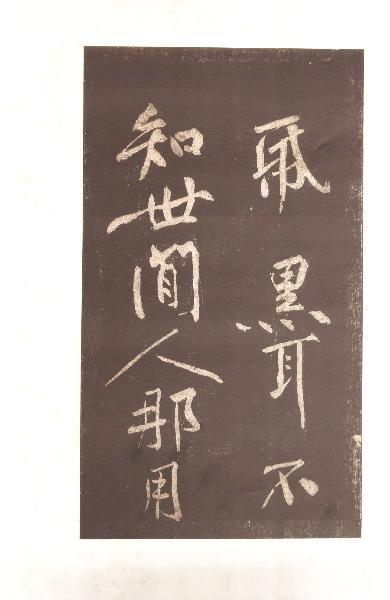 帋黑耳不
知世間人那用